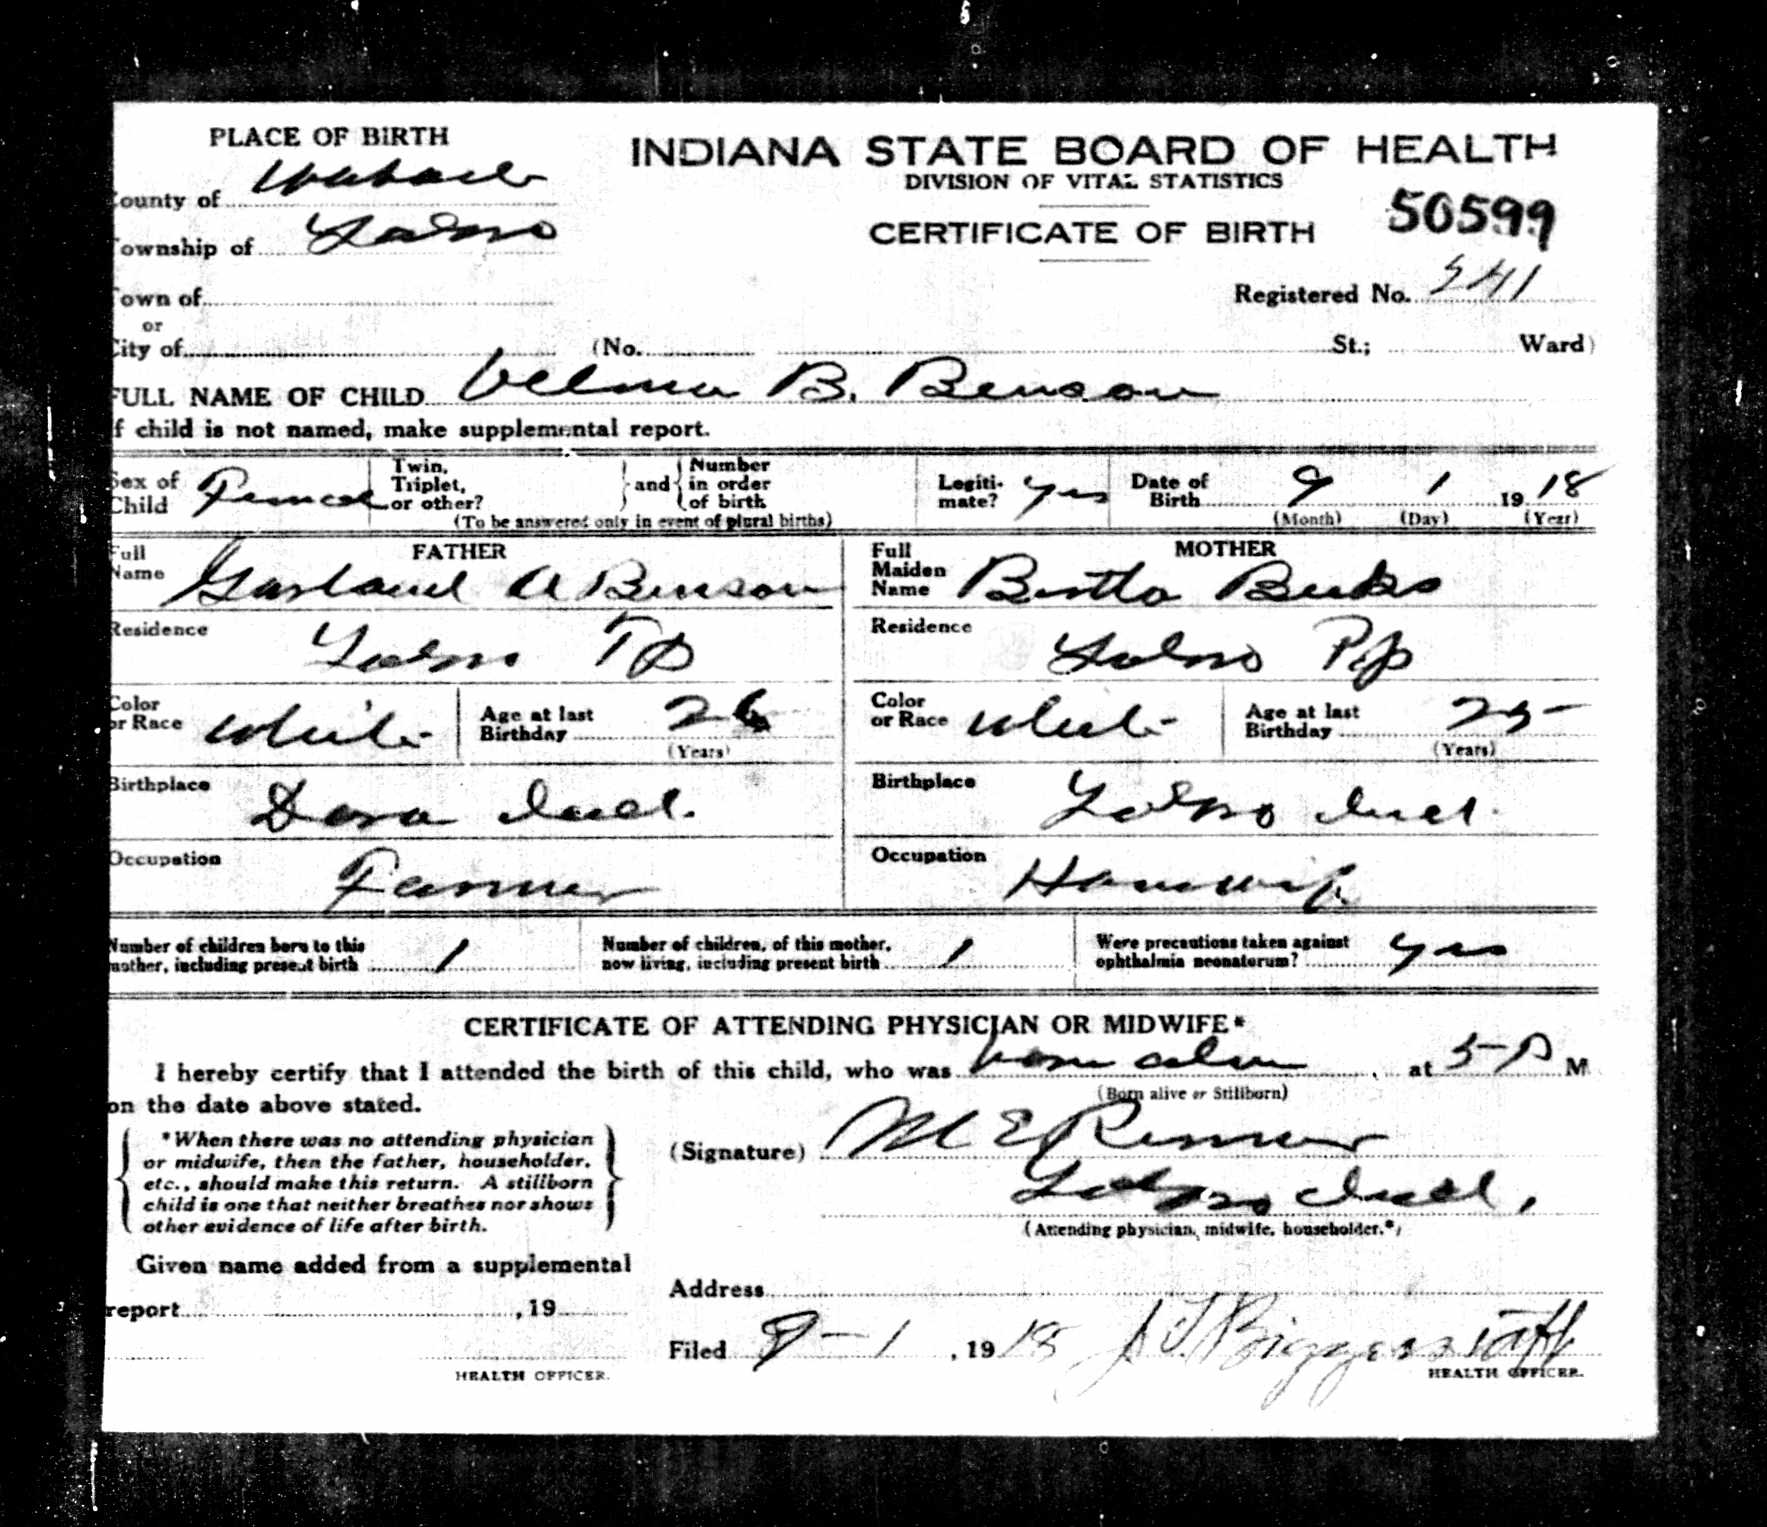 PLACE OF BIRTH
County of Wabash
Township of Lagro
Town of
or
City of (No. St.; Ward)
INDIANA STATE BOARD OF HEALTH
DIVISION OF VITAL STATISTICS
CERTIFICATE OF BIRTH 50599
Registered No. 541
FULL NAME OF CHILD Velma B. Benson
If child is not named, make supplemental report.
Sex of Child Female
Twin, Triplet, or other? and Number in order of birth
(To be answered only in event of plural births)
Legiti-mate? Yes
Date of Birth 9 1 1918
(Month) (Day) (Year)
FATHER
Full Name Garland A Benson
Residence Lagro Tp
Color or Race White
Age at last Birthday 26
(Years)
Birthplace Dora Ind.
Occupation Farmer
MOTHER
Full Maiden Name Bertha
Residence Lagro Tp
Color or Race White
Age at last Birthday 25
(Years)
Birthplace Lagro Ind.
Occupation Housewife
Number of children born to this mother, including present birth 1
Number of children, of this mother, now living, including present birth 1
Were precautions taken against ophthalmia neonatorum? Yes
CERTIFICATE OF ATTENDING PHYSICIAN OR MIDWIFE*
I hereby certify that I attended the birth of this child, who was born alive, at 5 P M
(Born alive or Stillborn)
on the date above stated.
*When there was no attending physician
or midwife, then the father, householder,
etc., should make this return. A stillborn
child is one that neither breathes nor shows
other evidence of life after birth.
(Signature) M E Renner
Lagro Ind.
(Attending physician, midwife, householder.*)
Given name added from a supplemental
report , 19
HEALTH OFFICER.
Address
Filed 9-1, 1918 Biggerstaff
HEALTH OFFICER.